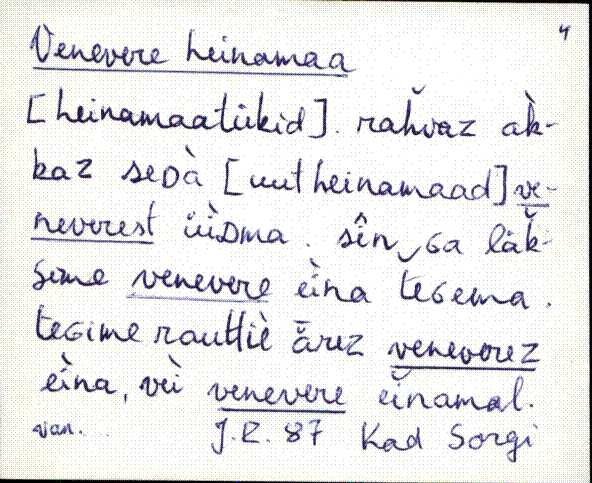 4
Venevere heinamaa
[heinamaatükid]. rah̆vaz ak̀-
kaz seDà [uut heinamaad] ve-
neverest üùDma. sîn‿Ga läk̆-
sime venevere eìna teGema.
teGime rauttiè ärez veneverez
eìna, veì venevere einamal.
van. J.R. 87 Kad Sorgi